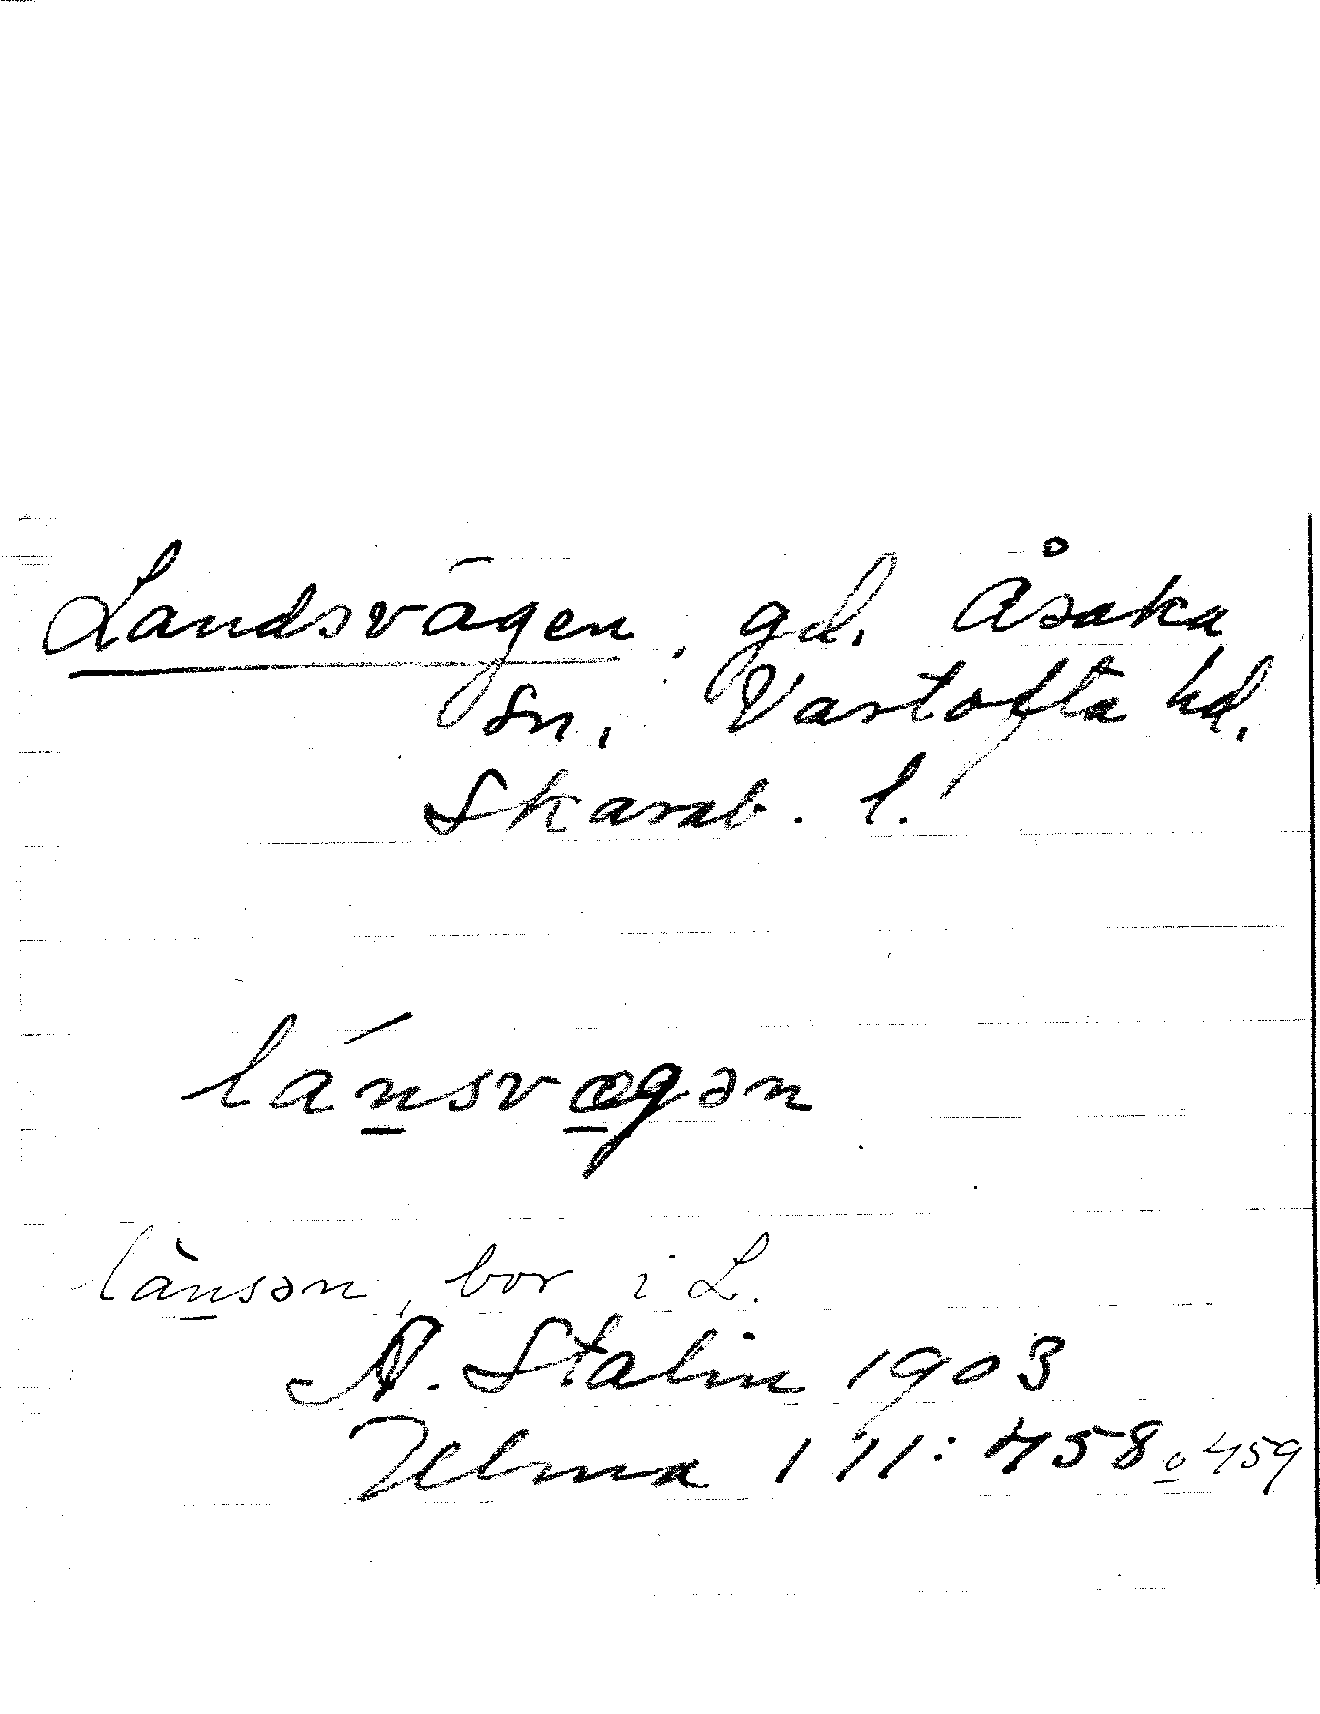 Landsvägen, gd. Åsaka
sn. Vartofta hd.
Skarab. l.
lánsvægən
lànsən, bor i L.
A. Stalin 1903
Ulma 111:458 o 459